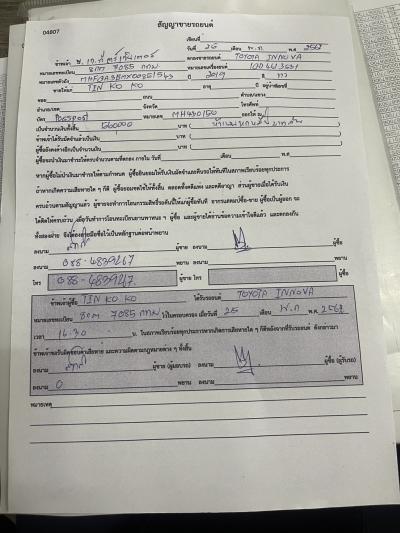 สัญญาขายรถยนต์
04807
เขียนที่
วันที่ 25 เดือน พ.ศ. 2567
ข้าพเจ้า ขายรถยนต์ TOYOTA INNOVA
หมายเลขทะเบียน 8กท 7085 กทม. หมายเลขเครื่องยนต์
หมายเลขตัวถัง ปี 2019 สี
ขายให้แก่ TIN KO KO อายุ ปี อยู่บ้านเลขที่
ซอย ถนน ตำบล/แขวง
อำเภอ/เขต จังหวัด โทรศัพท์
บัตร Passport หมายเลข MH430150 ออกให้ ณ
เป็นจำนวนเงินทั้งสิ้น 560000 บาท ( ห้าแสนหกหมื่นบาทถ้วน )
ข้าพเจ้าได้รับมัดจำไว้แล้วเป็นเงิน บาท (
ผู้ซื้อยังคงค้างอีกเป็นจำนวนเงิน บาท (
ผู้ซื้อจะนำเงินมาชำระให้ครบจำนวนตามที่ตกลง ภายใน วันที่ เดือน พ.ศ.
หากผู้ซื้อไม่นำเงินมาชำระให้ตามกำหนด ผู้ซื้อยินยอมให้ริบเงินมัดจำและคืนรถให้ทันทีในสภาพเรียบร้อยทุกประการ
ถ้าหากเกิดความเสียหายใด ๆ ก็ดี ผู้ซื้อยอมชดใช้ให้ทั้งสิ้น ตลอดทั้งคดีแพ่ง และคดีอาญา ส่วนผู้ขายเมื่อได้รับเงิน
ครบถ้วนตามสัญญาแล้ว ผู้ขายจะทำการโอนกรรมสิทธิ์รถคันนี้ให้แก่ผู้ซื้อทันที
ทั้งสองฝ่าย จึงได้ลงลายมือชื่อไว้เป็นหลักฐานต่อหน้าพยาน
ลงนาม ผู้ขาย ลงนาม ผู้ซื้อ
ลงนาม 088-4839147 พยาน ลงนาม พยาน
โทร 088-4839147 ผู้ขาย โทร ผู้ซื้อ
ข้าพเจ้าผู้ซื้อ TIN KO KO ได้รับรถยนต์ TOYOTA INNOVA
หมายเลขทะเบียน 8กท 7085 กทม ไว้ในครอบครอง เมื่อวันที่ 25 เดือน พ.ค พ.ศ. 2567
เวลา 16.30 น. ในสภาพเรียบร้อยทุกประการหากเกิดการเสียหายใด ๆ ก็ดีหลังจากที่รับรถยนต์ ดังกล่าวมา
ข้าพเจ้าขอรับผิดชอบค่าเสียหาย และความผิดตามกฎหมายต่าง ๆ ทั้งสิ้น
ลงนาม ผู้ขาย (ผู้มอบรถ) ลงนาม ผู้ซื้อ (ผู้รับรถ)
ลงนาม 0 พยาน ลงนาม พยาน
หมายเหตุ